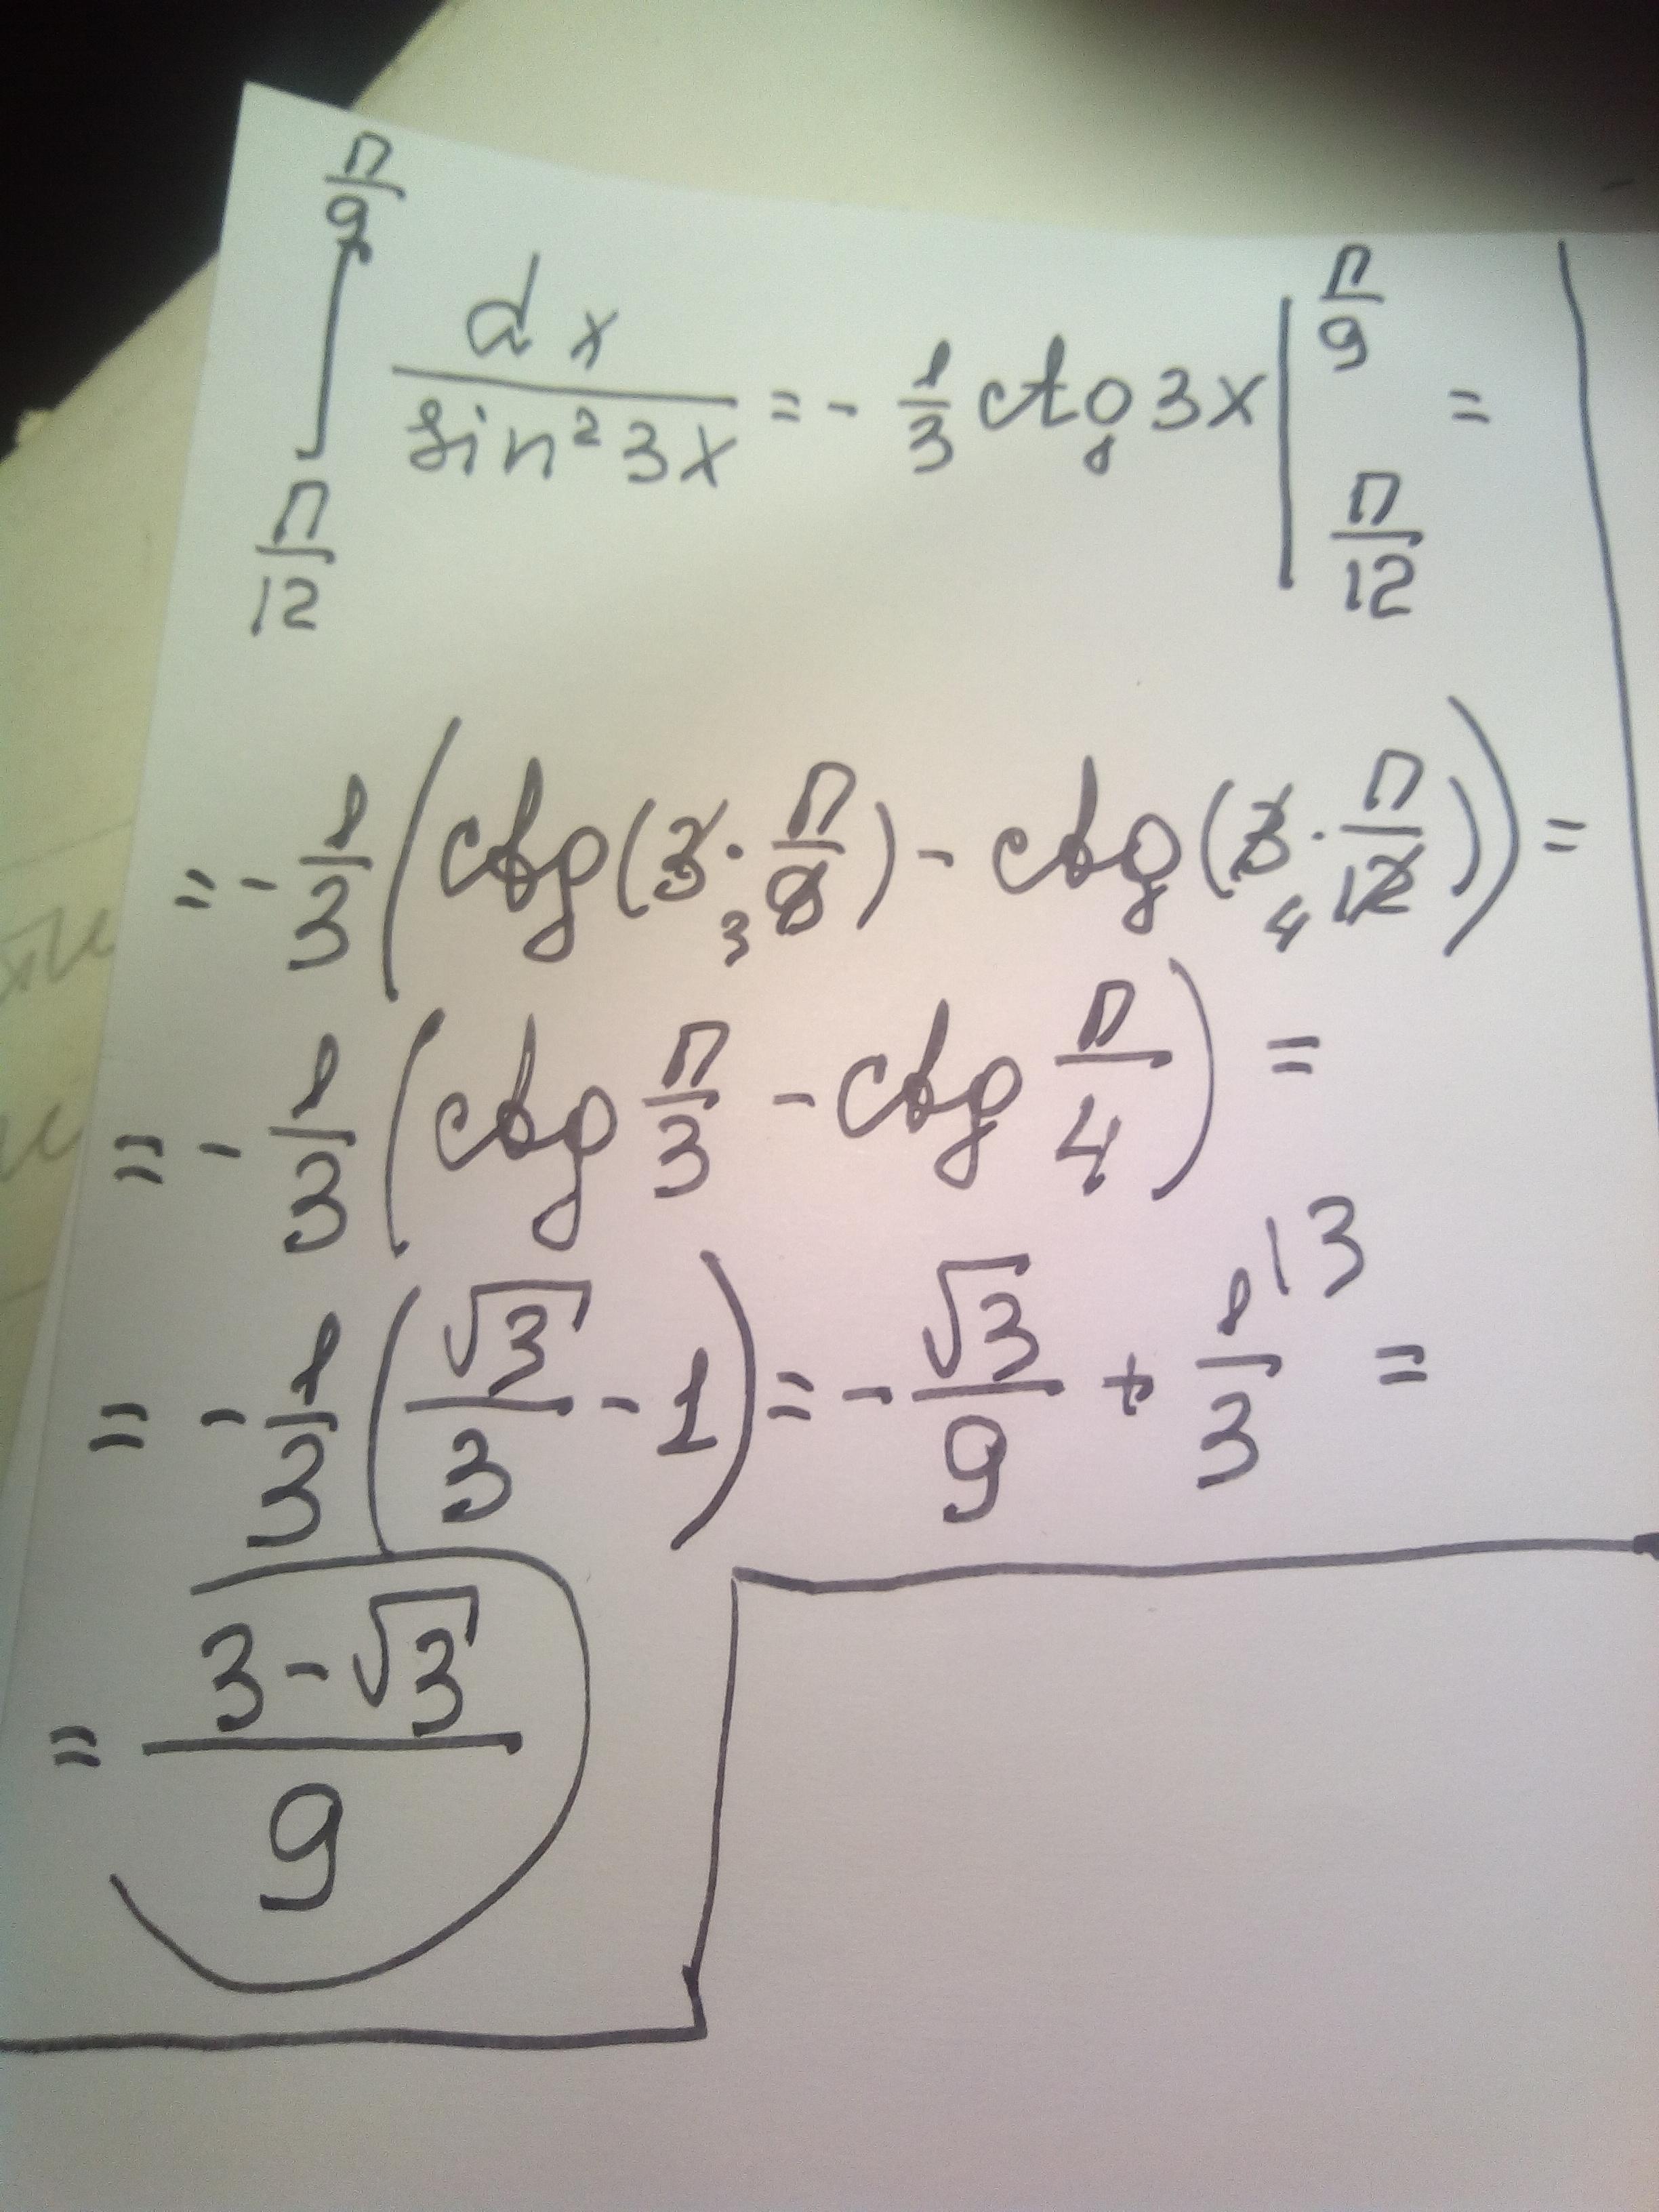 ∫_{π/12}^{π/9} dx/sin²3x = - 1/3 ctg 3x |_{π/12}^{π/9} =
= - 1/3 (ctg(3·π/9) - ctg(3·π/12)) = 3 4
= - 1/3 (ctg π/3 - ctg π/4) =
= - 1/3 (√3/3 - 1) = - √3/9 + 1/3 \3 =
= (3-√3)/9